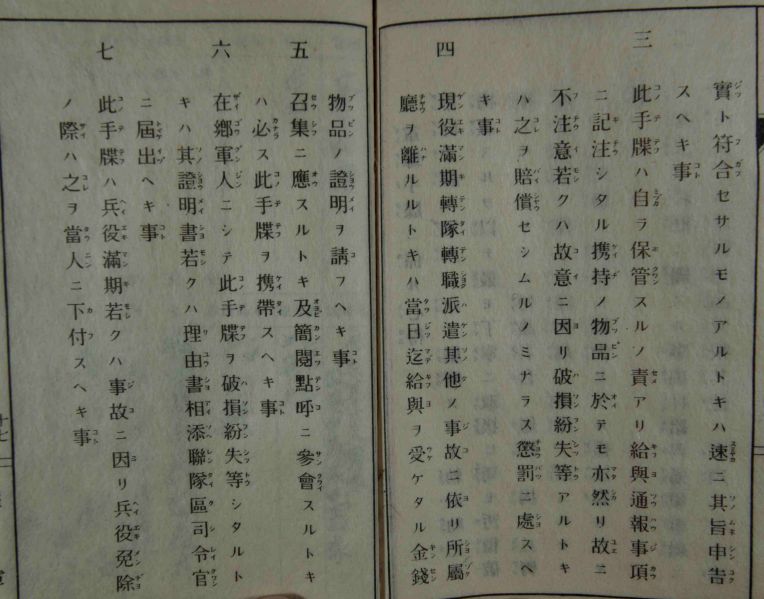 實ト符合セサルモノアルトキハ速ニ其旨申告
スヘキ事
三 此手牒ハ自ラ保管スルノ責アリ給與通報事項
ニ記注シタル携持ノ物品ニ於テモ亦然リ故ニ
不注意若クハ故意ニ因リ破損紛失等アルトキ
ハ之ヲ賠償セシムルノミナラス懲罰ニ處スヘ
キ事
四 現役滿期轉隊轉職派遣其他ノ事故ニ依リ所屬
廳ヲ離ルルトキハ當日迄給與ヲ受ケタル金錢
物品ノ證明ヲ請フヘキ事
五 召集ニ應スルトキ及簡閲點呼ニ參會スルトキ
ハ必ス此手牒ヲ携帶スヘキ事
六 在郷軍人ニシテ此手牒ヲ破損紛失等シタルト
キハ其證明書若クハ理由書相添聯隊區司令官
ニ屆出ヘキ事
七 此手牒ハ兵役滿期若クハ事故ニ因リ兵役免除
ノ際ハ之ヲ當人ニ下付スヘキ事
十七